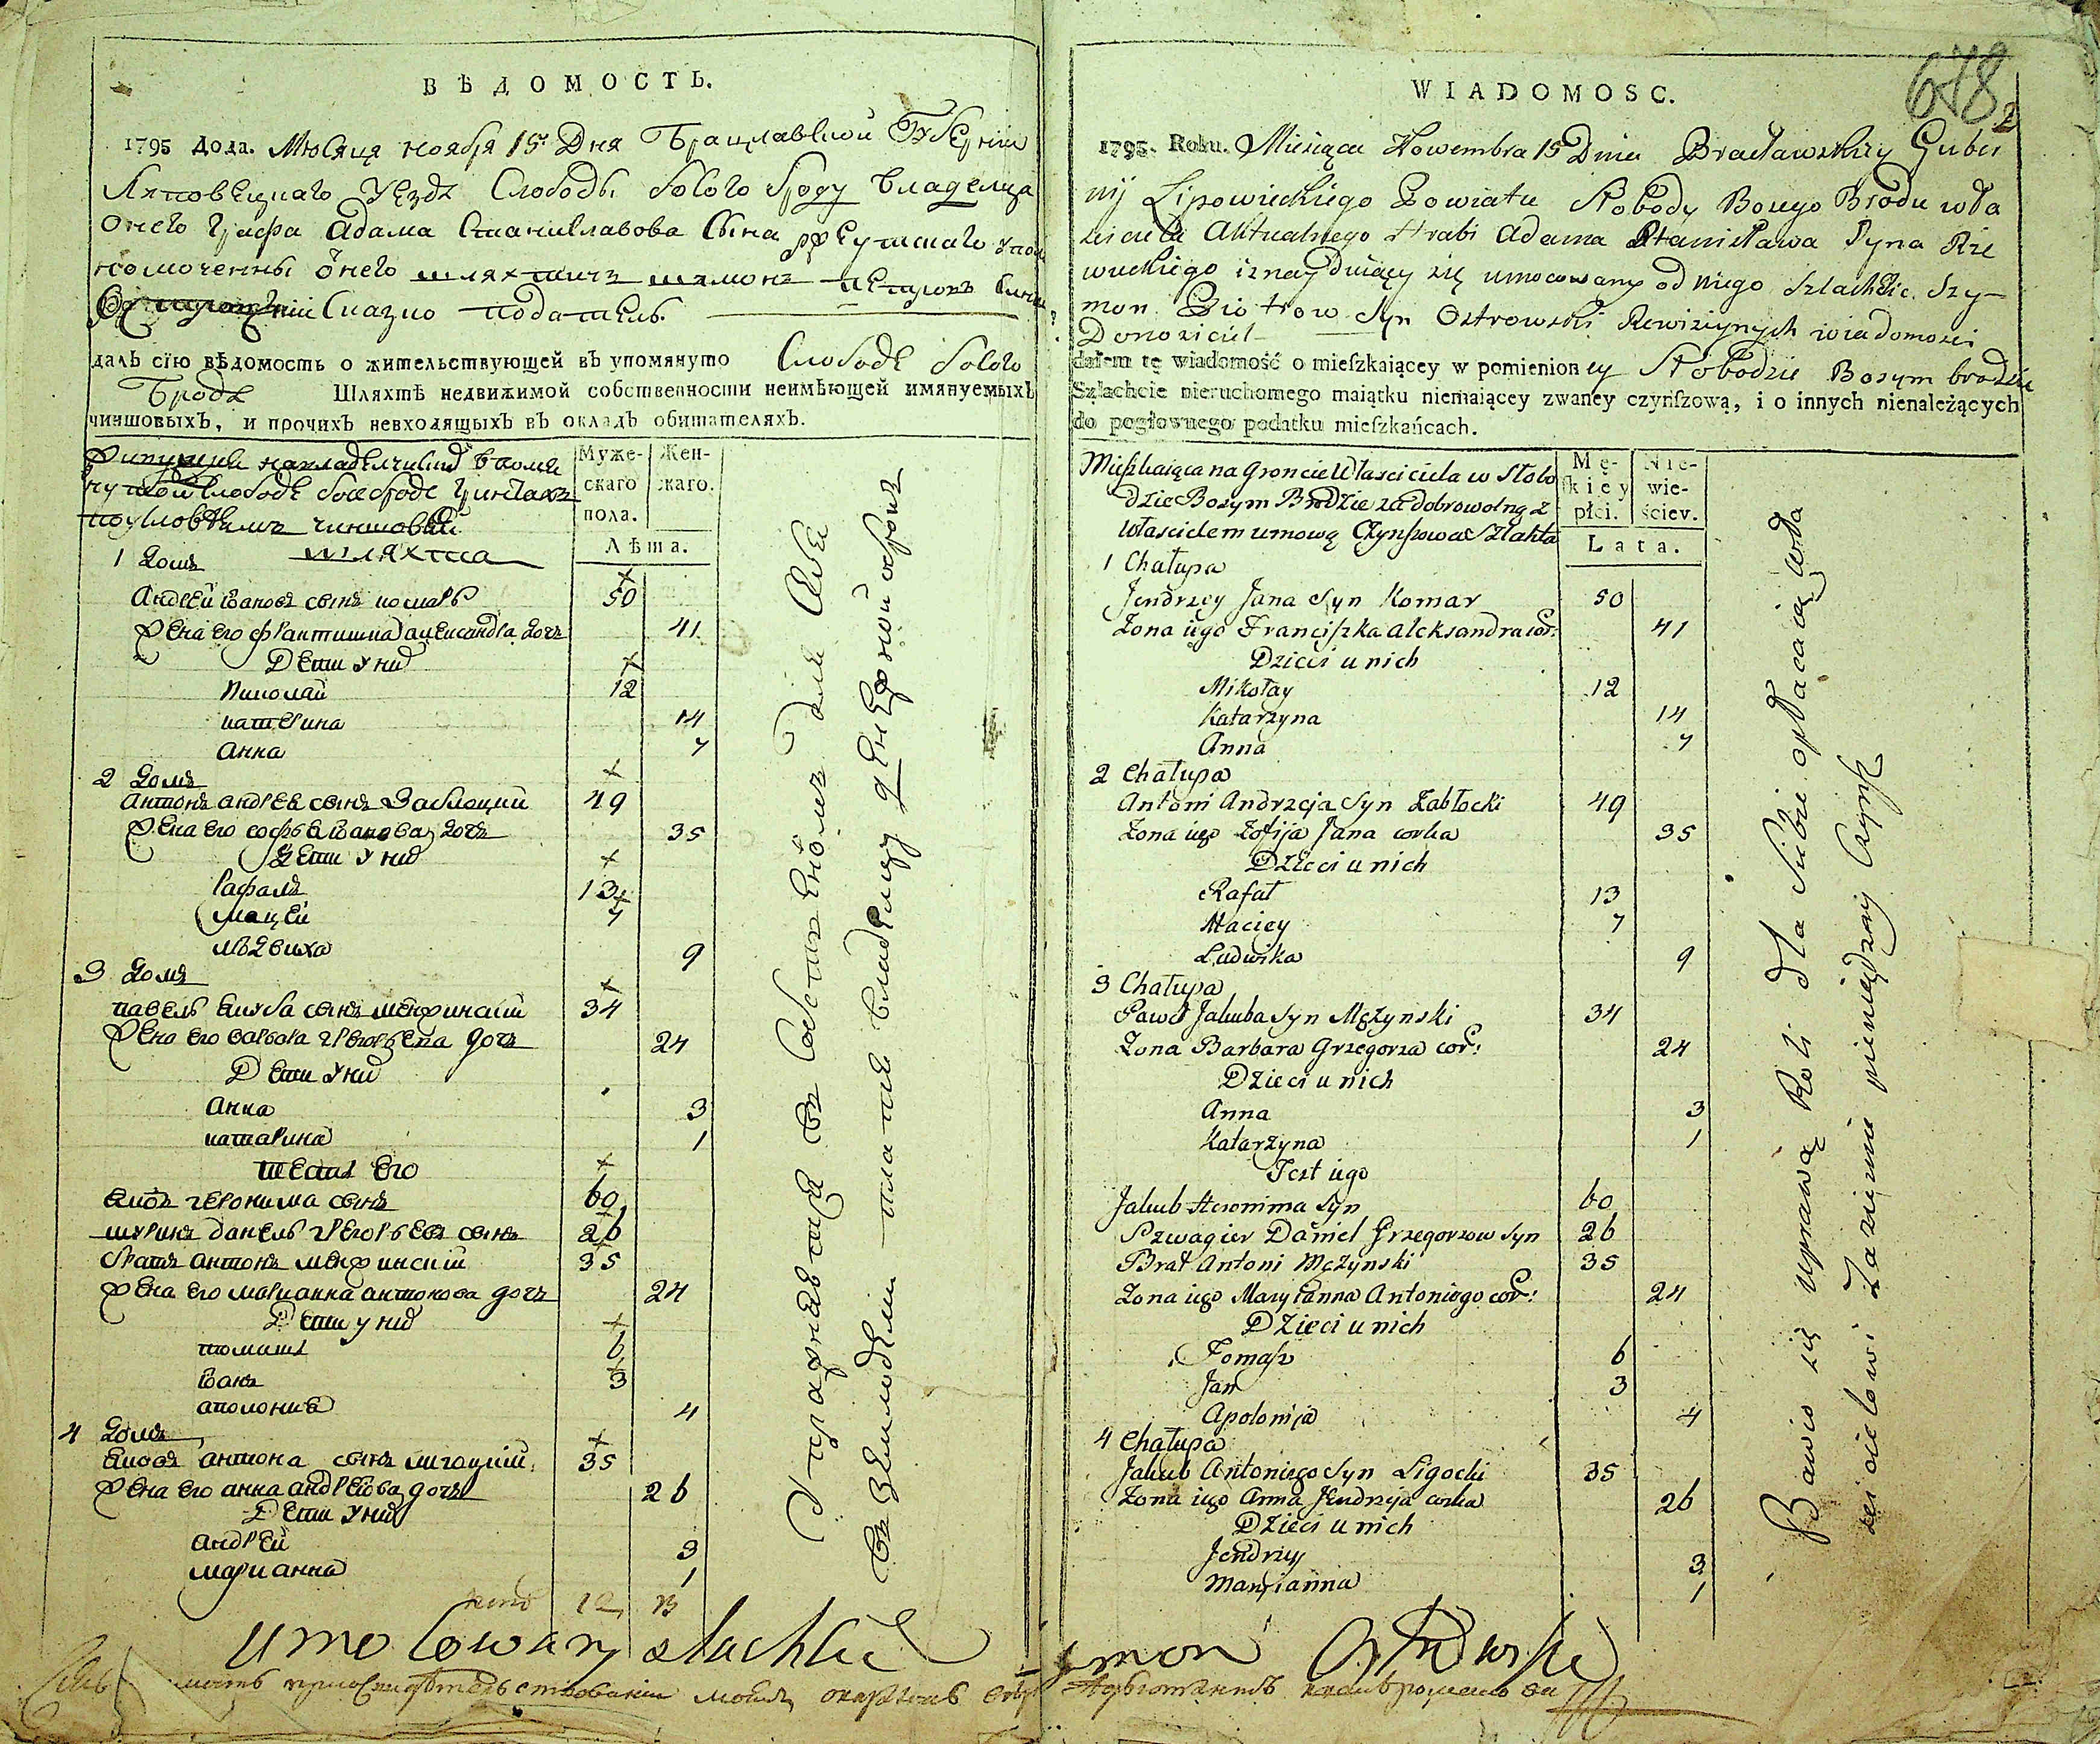 ВѢДОМОСТЬ.
1795 Года. Месяца Ноября 15 Дня Брацлавской Губернии
Липовецкаго Уезда Слободы босого броду владельца
онего Графа Адама Станиславова Сына Ржеутскаго упол
номоченны онего шляхтичъ шимонъ петровъ сынъ
Сказню податель.
далъ сїю вѣдомость о жительствующей въ упомянуто Слободе босого
Броде Шляхтѣ недвижимой собственности неимѣющей имянуемыхъ
чиншовыхъ, и прочихъ невходящыхъ въ окладъ обитателяхъ.
Слободе босе броде грунтахъ
чиншовая
шляхта
Мужескаго пола. Женскаго.
Лѣта.
1 Домъ
Андрей Иановъ сынъ комаръ 50
Жена его францишка александра дочъ 41
Дети у них
Николай 12
катерина 14
Анна 7
2 Домъ
Антонъ андреевъ сынъ Заблоцкий 49
Жена его софья Иванова дочъ 35
Дети у них
Рафалъ 13
Мацей 7
людвика 9
3 Домъ
павелъ якуба сынъ менжинский 34
Жена его варвара григорьева дочъ 24
Дети у них
Анна 3
катарина 1
тесть его
якобъ геронима сынъ 60
шуринъ данель григорьевъ сынъ 26
братъ антонъ менжинский 35
Жена его марианна антонова дочъ 24
Дети у них
томашъ 6
Иванъ 3
аполония 4
4 Домъ
якобъ антона сынъ лигоцкий 35
Жена его анна андреева дочъ 26
Дети у них
андрей 3
марианна 1
12 13
Упражняется въ собственномъ для себя
въ земледелии платя владельцу денежной оброкъ
Umocowany szlachcic
WIADOMOSC.
678
2
1795. Roku. Miesiąca Nowembra 15 Dnia Bracławskiey Guber
nij Lipowieckiego Powiatu Słobody Bosego Brodu wła
sciciela Aktualnego Hrabi Adama Stanisława Syna Rże
wuckiego iznaydujący się umocowany od niego Szlachcic Szy-
mon Piotrow Syn Ostrowski Rewizyinych wiadomosci
Donosiciel
dałem tę wiadomość o mieſzkaiącey w pomienioney Słobodzie Bosym brodzie
Szlachcie nieruchomego maiątku niemaiącey zwaney czynſzową, i o innych nienależących
do pogłownego podatku mieſzkańcach.
Mieszkaiąca na Gronciе Własciciela w Słobo
dzie Bosym Brodzie za dobrowolną z
Własciciełem umową Czynszowa Szlahta
Męſkiey płci. Niewieściey.
Lata.
1 Chałupa
Jendrzey Jana Syn Komar 50
Zona iego Franciszka Aleksandra cor: 41
Dzieci u nich
Mikołay 12
Katarzyna 14
Anna 7
2 Chałupa
Antoni Andrzeja Syn Zabłocki 49
Zona iego Zofija Jana corka 35
Dzieci u nich
Rafał 13
Maciey 7
Ludwika 9
3 Chałupa
Paweł Jakuba Syn Mężynski 34
Zona Barbara Grzegorza cor: 24
Dzieci u nich
Anna 3
Katarzyna 1
Test iego
Jakub Heronima Syn 60
Szwagier Daniel Grzegorzow Syn 26
Brat Antoni Mężynski 35
Zona iego Maryianna Antoniego cor: 24
Dzieci u nich
Tomasz 6
Jan 3
Apolonija 4
4 Chałupa
Jakub Antoniego Syn Ligocki 35
Zona iego Anna Jendrzeja corka 26
Dzieci u nich
Jendrzey 3
Maryianna 1
Bawio się uprawą Roli dla Siebie opłacaią wła
scicielowi Zaziemie pieniędzmi Czynsz
Symon Ostrowski